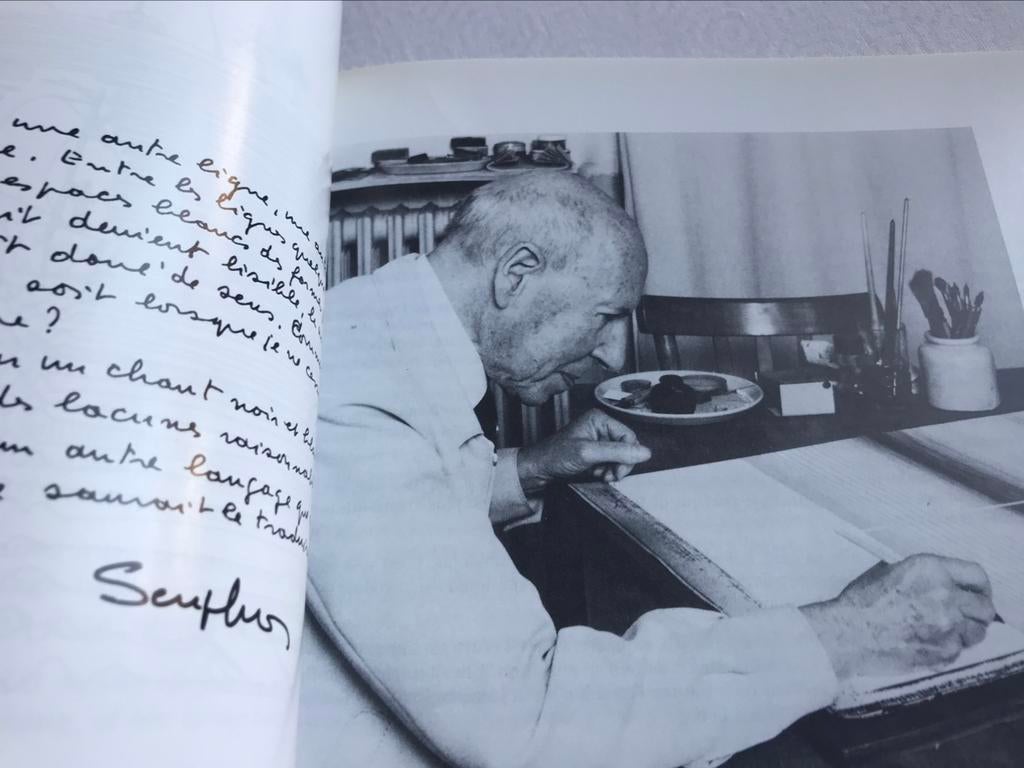 une autre ligne, une
e. Entre les lignes quelq
espaces blancs des forme
it devient lisible, le
t doué de sens. Comm
soit lorsque je ne
e?
n un chant noir et
des lacunes raisonna
un autre langage que
e saurait le tradui
Seuphor